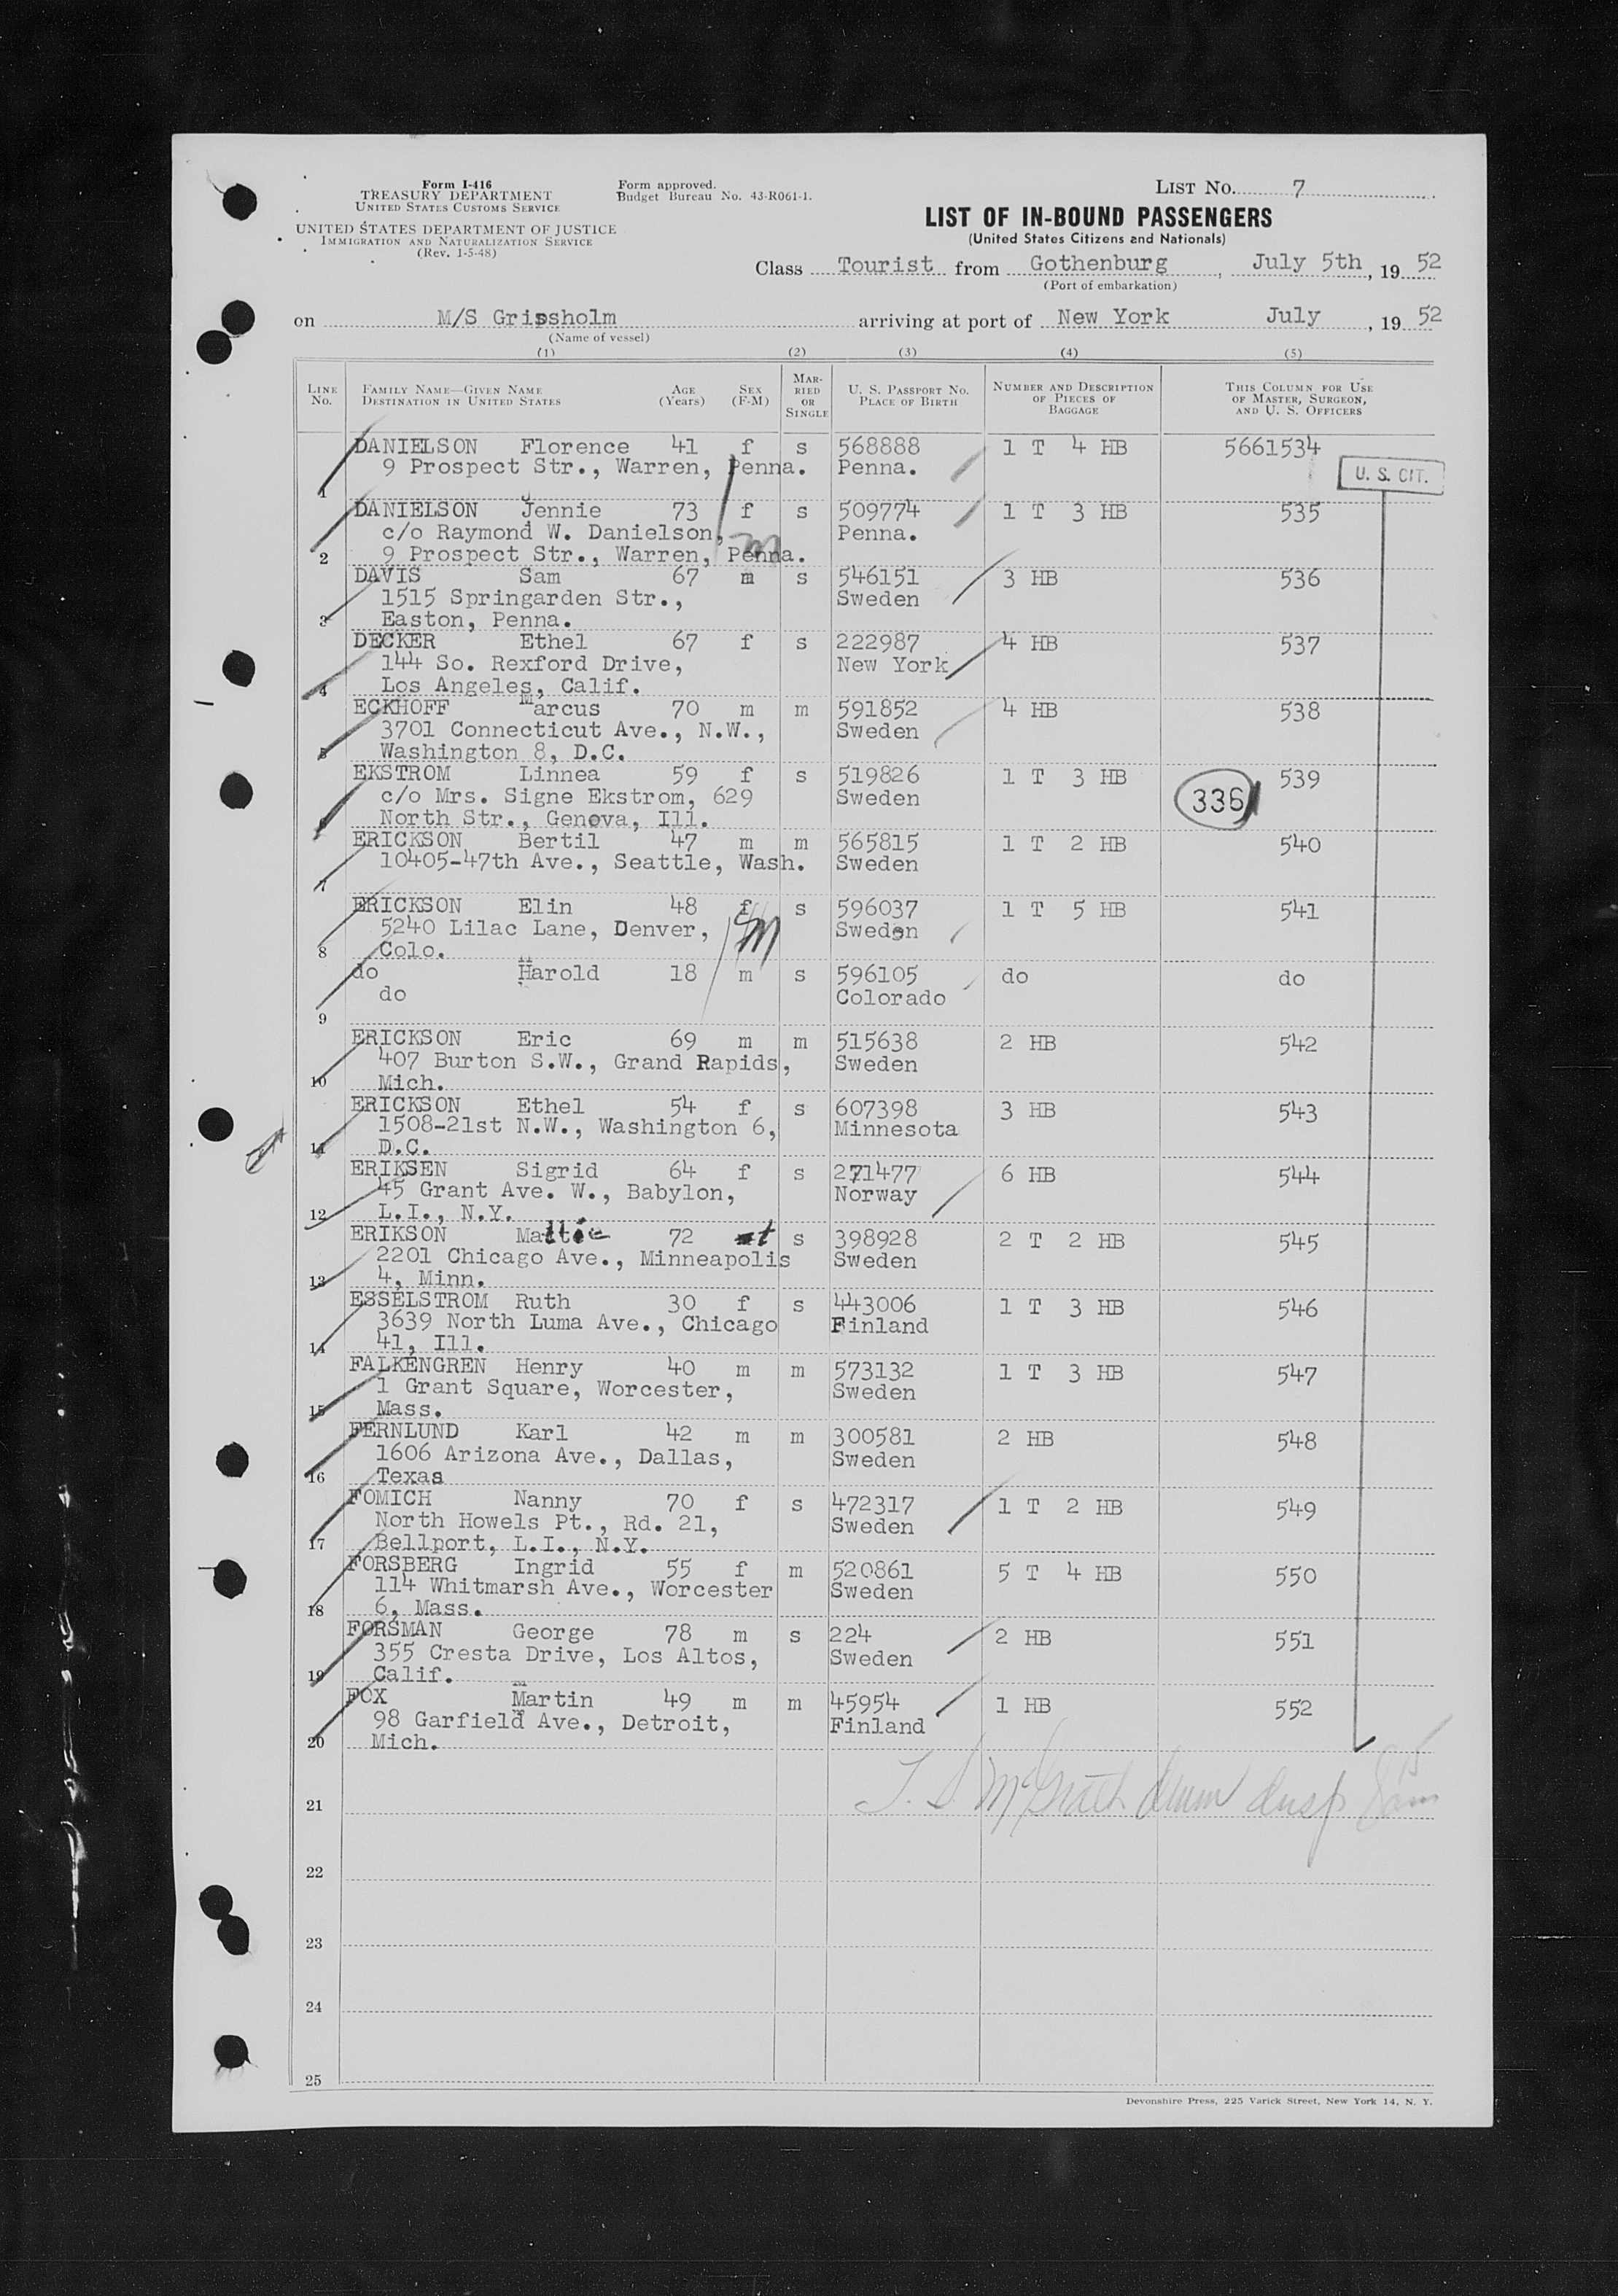 Form I-416
TREASURY DEPARTMENT
UNITED STATES CUSTOMS SERVICE
UNITED STATES DEPARTMENT OF JUSTICE
IMMIGRATION AND NATURALIZATION SERVICE
(Rev. 1-5-48)
Form approved.
Budget Bureau No. 43-R061-1.
LIST NO. 7
LIST OF IN-BOUND PASSENGERS
(United States Citizens and Nationals)
Class Tourist from Gothenburg, July 5th, 19 52
(Port of embarkation)
on M/S Gripsholm arriving at port of New York July, 19 52
(Name of vessel)
(1) (2) (3) (4) (5)
LINE NO. FAMILY NAME—GIVEN NAME DESTINATION IN UNITED STATES AGE (Years) SEX (F-M) MARRIED OR SINGLE U. S. PASSPORT NO. PLACE OF BIRTH NUMBER AND DESCRIPTION OF PIECES OF BAGGAGE THIS COLUMN FOR USE OF MASTER, SURGEON, AND U. S. OFFICERS
DANIELSON Florence 41 f s 568888 1 T 4 HB 5661534
9 Prospect Str., Warren, Penna. Penna.
U. S. CIT.
1
DANIELSON Jennie 73 f s 509774 1 T 3 HB 535
c/o Raymond W. Danielson, Penna.
2 9 Prospect Str., Warren, Penna. m
DAVIS Sam 67 m s 546151 3 HB 536
1515 Springarden Str., Sweden
3 Easton, Penna.
DECKER Ethel 67 f s 222987 4 HB 537
144 So. Rexford Drive, New York
4 Los Angeles, Calif.
ECKHOFF Marcus 70 m m 591852 4 HB 538
3701 Connecticut Ave., N.W., Sweden
5 Washington 8, D.C.
EKSTROM Linnea 59 f s 519826 1 T 3 HB 539
c/o Mrs. Signe Ekstrom, 629 Sweden 336
6 North Str., Genova, Ill.
ERICKSON Bertil 47 m m 565815 1 T 2 HB 540
10405-47th Ave., Seattle, Wash. Sweden
7
ERICKSON Elin 48 f s 596037 1 T 5 HB 541
5240 Lilac Lane, Denver, m Sweden
8 Colo.
do Harold 18 m s 596105 do do
do Colorado
9
ERICKSON Eric 69 m m 515638 2 HB 542
407 Burton S.W., Grand Rapids, Sweden
10 Mich.
ERICKSON Ethel 54 f s 607398 3 HB 543
1508-21st N.W., Washington 6, Minnesota
11 D.C.
ERIKSEN Sigrid 64 f s 271477 6 HB 544
45 Grant Ave. W., Babylon, Norway
12 L.I., N.Y.
ERIKSON Mattie 72 s 398928 2 T 2 HB 545
2201 Chicago Ave., Minneapolis Sweden
13 4, Minn.
ESSELSTROM Ruth 30 f s 443006 1 T 3 HB 546
3639 North Luma Ave., Chicago Finland
14 41, Ill.
FALKENGREN Henry 40 m m 573132 1 T 3 HB 547
1 Grant Square, Worcester, Sweden
15 Mass.
FERNLUND Karl 42 m m 300581 2 HB 548
1606 Arizona Ave., Dallas, Sweden
16 Texas
FOMICH Nanny 70 f s 472317 1 T 2 HB 549
North Howels Pt., Rd. 21, Sweden
17 Bellport, L.I., N.Y.
FORSBERG Ingrid 55 f m 520861 5 T 4 HB 550
114 Whitmarsh Ave., Worcester Sweden
18 6, Mass.
FORSMAN George 78 m s 224 2 HB 551
355 Cresta Drive, Los Altos, Sweden
19 Calif.
FOX Martin 49 m m 45954 1 HB 552
98 Garfield Ave., Detroit, Finland
20 Mich.
21
22
23
24
25
Devonshire Press, 225 Varick Street, New York 14, N. Y.